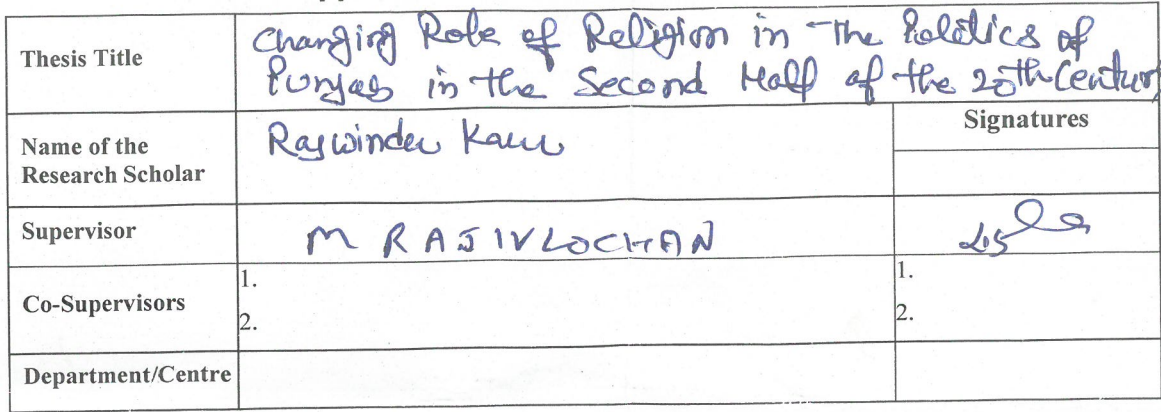 Thesis Title
Changing Role of Religion in The Politics of
Punjab in the Second Half of the 20th Century
Name of the
Research Scholar
Rajwinder Kaur
Signatures
Supervisor
M RAJIVLOCHAN
Co-Supervisors
1.
2.
1.
2.
Department/Centre